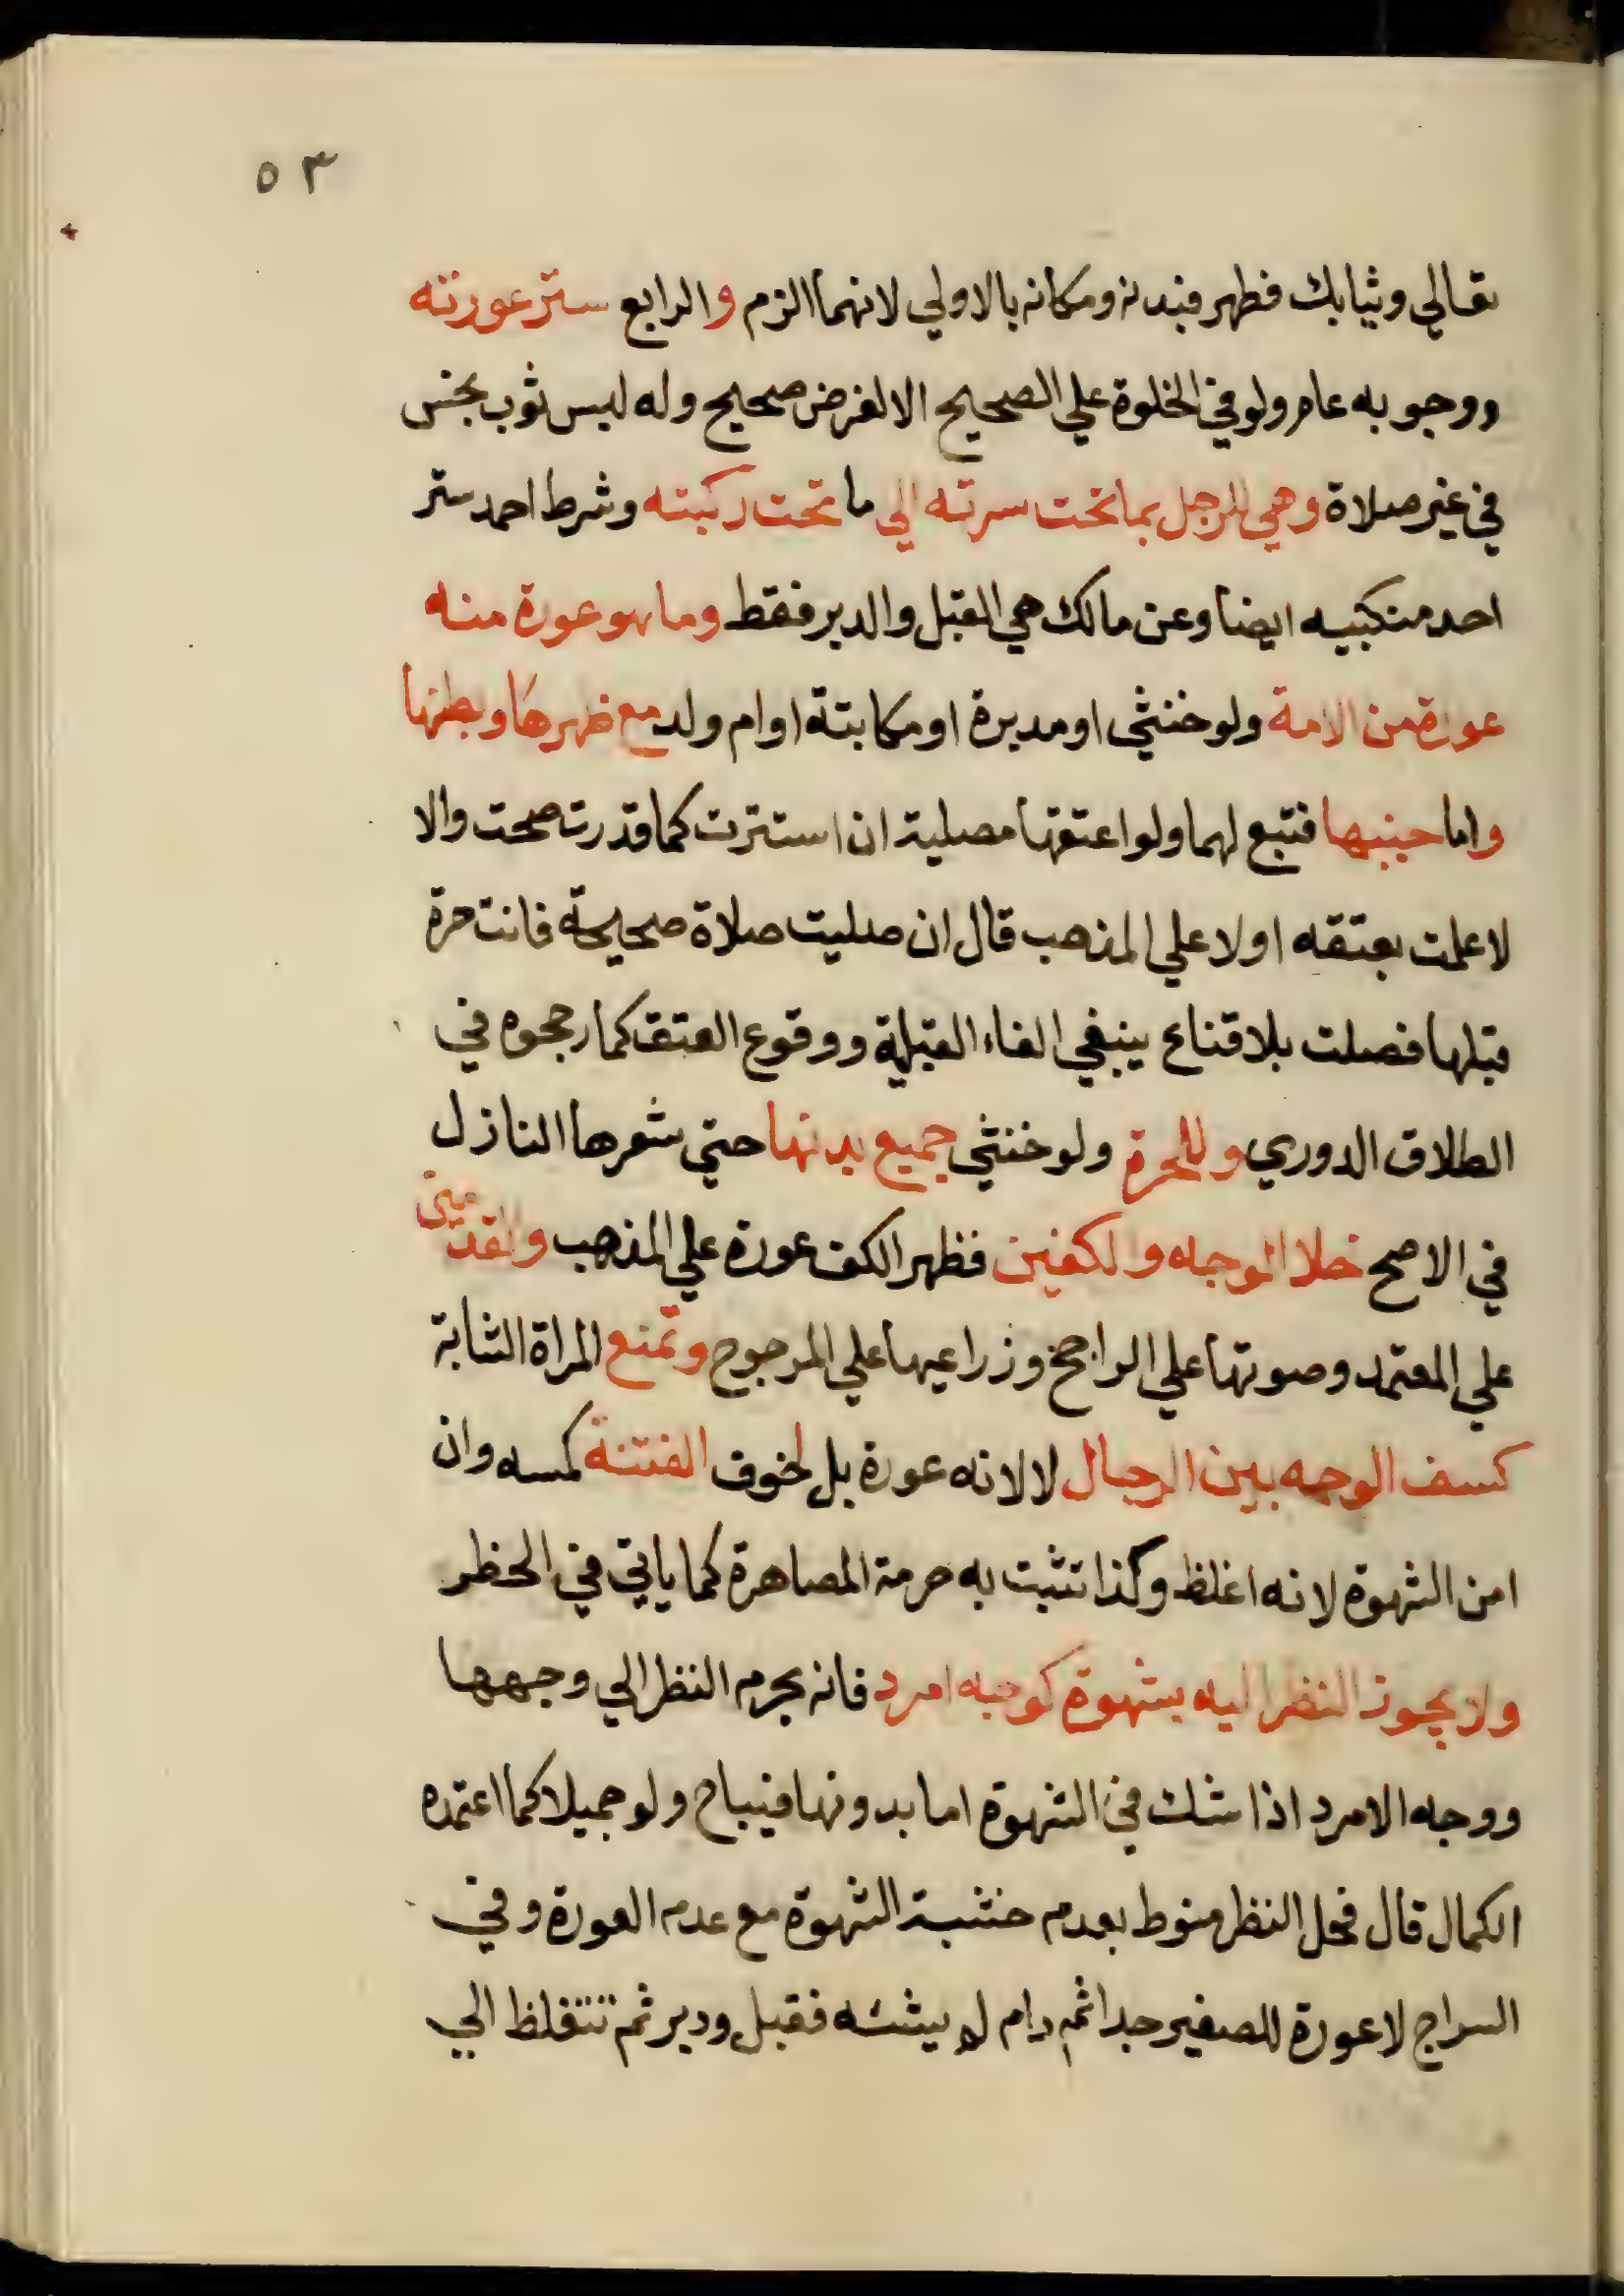 ٥٣
تعالي وثيابك فطهر فبدنه ومكانه بالاولي لانهما الزم والرابع ستر عورته
ووجوبه عام ولو في الخلوة علي الصحيح الا لغرض صحيح وله لبس ثوب نجس
في غير صلاة وهي للرجل بما تحت سرته الي ما تحت ركبته وشرط احمد ستر
احد منكبيه ايضا وعن مالك هي القبل والدبر فقط وما هو عورة منه
عورة من الامة ولو خنثي او مدبرة او مكاتبة او ام ولد مع ظهرها وبطنها
واما جنبها فتبع لهما ولو اعتقها مصلية ان استترت كما قدرت صحت والا
لا علمت بعتقه اولا علي المذهب قال ان صليت صلاة صحيحة فانت حرة
قبلها فصلت بلا قناع ينبغي الغاء القبلية ووقوع العتق كما رجحوه في
الطلاق الدوري وللحرة ولو خنثي جميع بدنها حتي شعرها النازل
في الاصح خلا الوجه والكفين فظهر الكف عورة علي المذهب والقدمين
علي المعتمد وصوتها علي الراجح وذراعيها علي المرجوح وتمنع المراة الشابة
كشف الوجه بين الرجال لا لانه عورة بل لخوف الفتنة كمسه وان
امن الشهوة لانه اغلظ وكذا تثبت به حرمة المصاهرة كما ياتي في الحظر
ولا يجوز النظر اليه بشهوة كوجه امرد فانه يحرم النظر الي وجهها
ووجه الامرد اذا شك في الشهوة اما بدونها فيباح ولو جميلا كما اعتمده
الكمال قال فحل النظر منوط بعدم خشية الشهوة مع عدم العورة وفي
السراج لا عورة للصغير جدا ثم دام لم يشته فقبل ودبر ثم تتغلظ الي